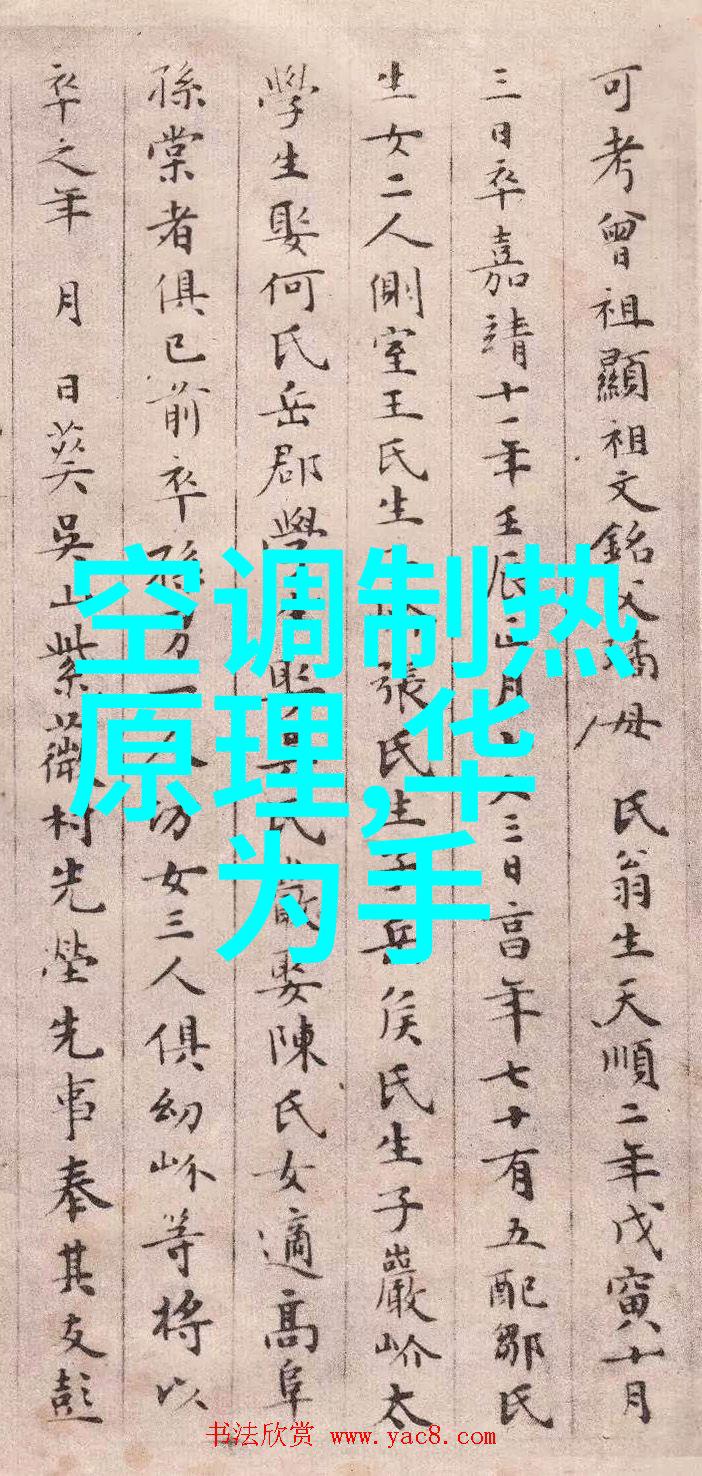 可考曾祖顯祖文銘父璠母 氏翁生天順二年戊寅十月
三日卒嘉靖十一年壬辰正月 三日享年七十有五配鄒氏
生女二人側室王氏生 張氏生子岳侯氏生子巖岕太
學生娶何氏岳郡學 娶 氏巖娶陳氏女適高阜
孫棠者俱已前卒孫男一人 幼女三人俱幼岕等將以
卒之年 月 日葬吳山紫薇村先塋先事奉其友彭
空调制热
原理,华
为手
书法欣赏 www.yac8.com